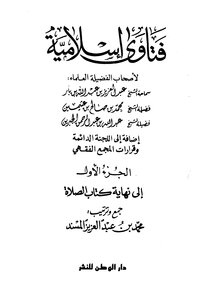 فتاوى إسلامية
لأصحاب الفضيلة العلماء:
سماحة الشيخ عبد العزيز بن عبد الله بن باز
فضيلة الشيخ محمد بن صالح بن عثيمين
فضيلة الشيخ عبد الله بن عبد الرحمن الجبرين
إضافة إلى اللجنة الدائمة
وقرارات المجمع الفقهي
الجزء الأول
إلى نهاية كتاب الصلاة
جمع وترتيب
محمد بن عبد العزيز المسند
دار الوطن للنشر